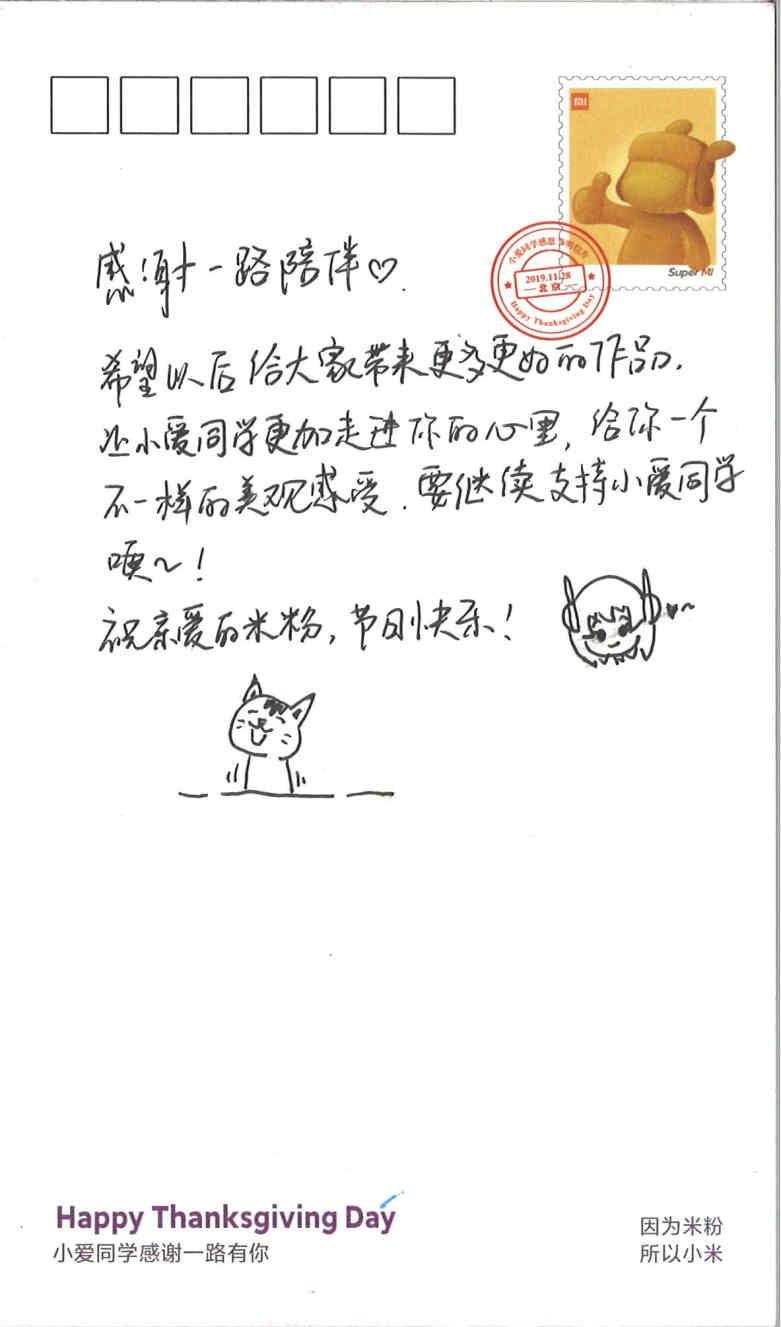 MI
Super MI
小爱同学感恩节明信片
2019.11.28
北京
Happy Thanksgiving Day
感谢一路陪伴♡.
希望以后给大家带来更多更好的作品.
让小爱同学更加走进你的心里, 给你一个
不一样的美观感受. 要继续支持小爱同学
噢~!
祝亲爱的米粉, 节日快乐!
Happy Thanksgiving Day
小爱同学感谢一路有你
因为米粉
所以小米